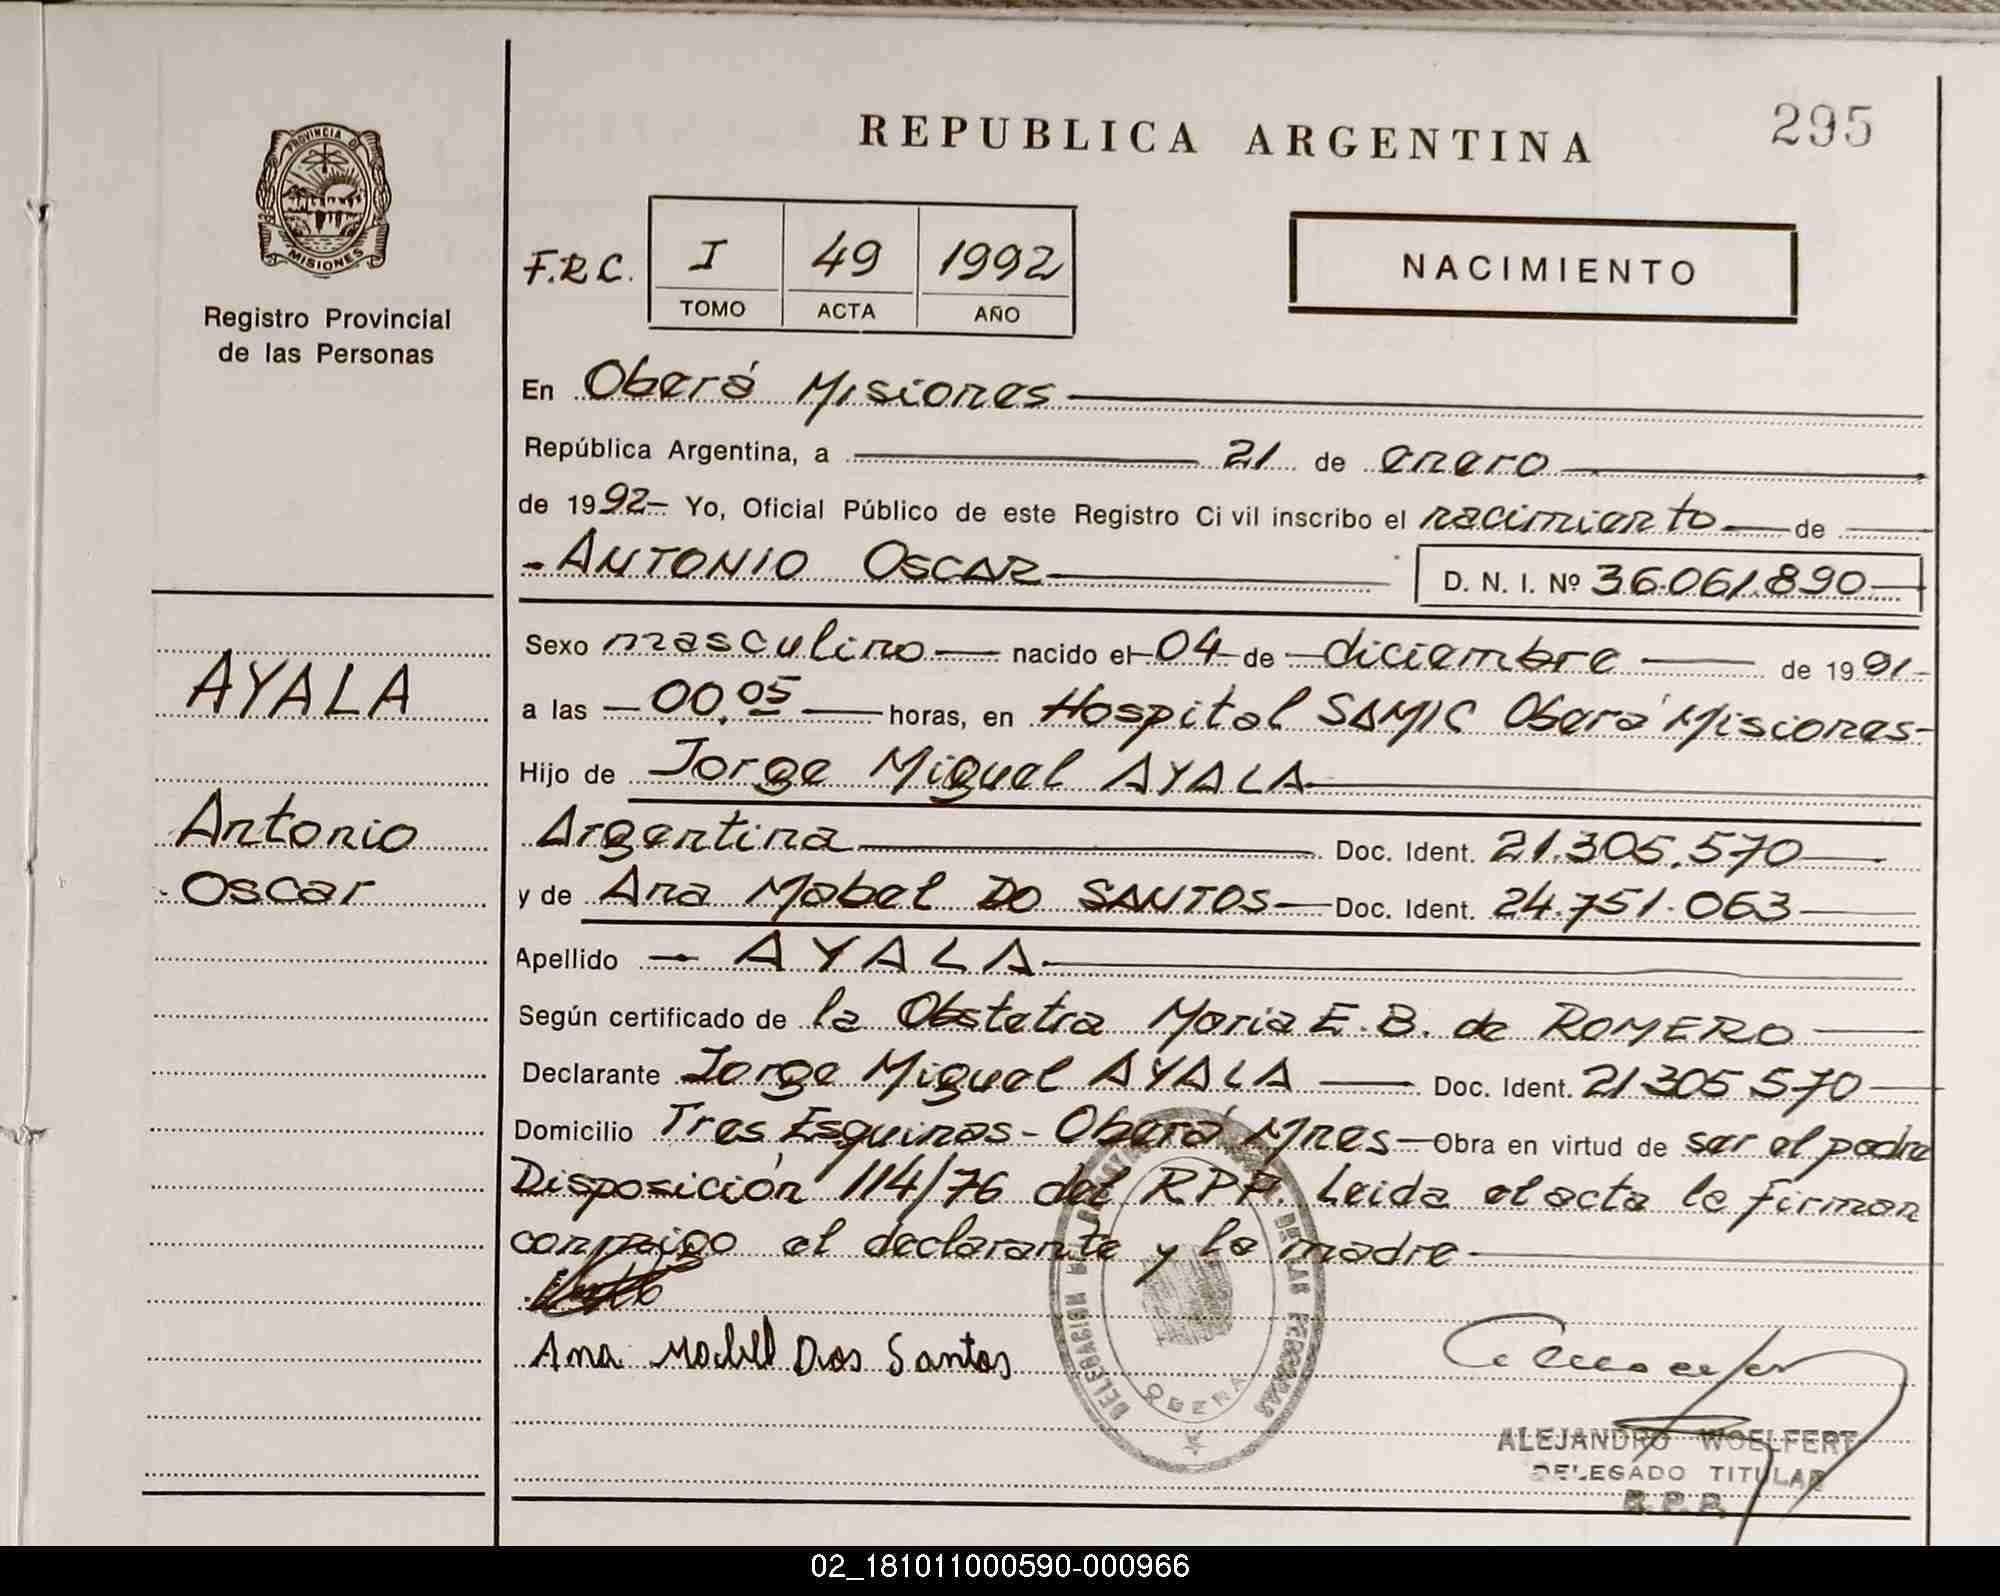 REPUBLICA ARGENTINA
295
PROVINCIA DE
MISIONES
Registro Provincial
de las Personas
F.R.C.
I 49 1992
TOMO ACTA AÑO
NACIMIENTO
En Oberá Misiones
República Argentina, a 21 de enero
de 1992- Yo, Oficial Público de este Registro Ci vil inscribo el nacimiento de
- ANTONIO OSCAR
D. N. I. Nº 36.061.890
AYALA
Antonio
Oscar
Sexo masculino nacido el 04 de diciembre de 1991-
a las 00,05 horas, en Hospital SAMIC Oberá Misiones-
Hijo de Jorge Miguel AYALA
Argentina Doc. Ident. 21.305.570
y de Ana Mabel DO SANTOS Doc. Ident. 24.751.063
Apellido AYALA
Según certificado de la Obstetra Maria E.B. de ROMERO
Declarante Jorge Miguel AYALA Doc. Ident. 21305570
Domicilio Tres Esquinas - Oberá Mnes Obra en virtud de ser el padre
Disposición 114/76 del RPP. Leida el acta la firman
conmigo el declarante y la madre
Ana Mabell Dos Santos
DELEGACION DE LAS PERSONAS
OBERA
ALEJANDRO WOELFERT
DELEGADO TITULAR
R.P.P.
02_181011000590-000966